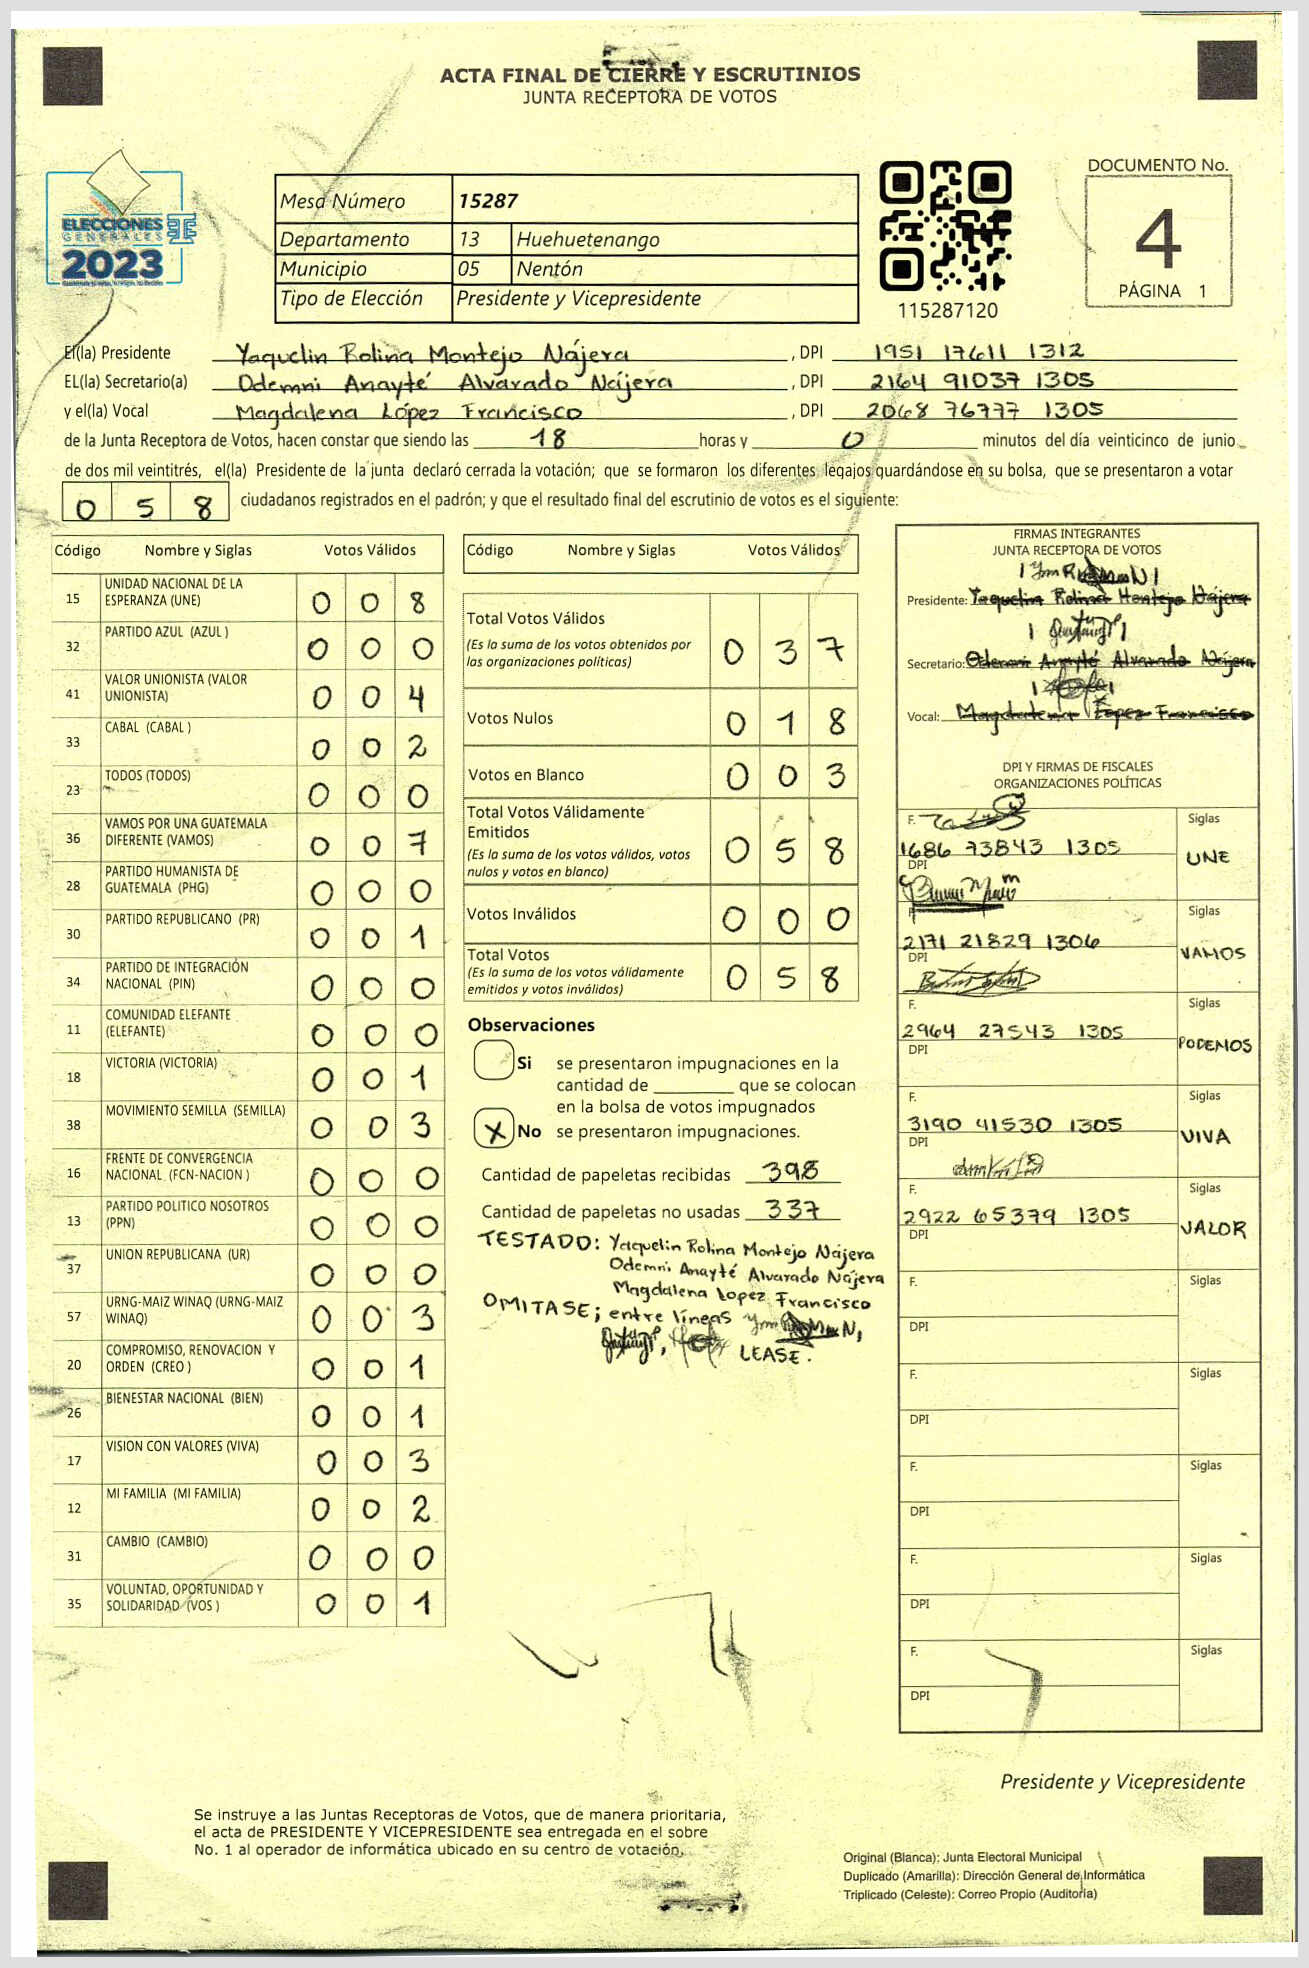 ACTA FINAL DE CIERRE Y ESCRUTINIOS
JUNTA RECEPTORA DE VOTOS
ELECCIONES
GENERALES
2023
Mesa Número 15287
Departamento 13 Huehuetenango
Municipio 05 Nentón
Tipo de Elección Presidente y Vicepresidente
115287120
DOCUMENTO No.
4
PÁGINA 1
El(la) Presidente Yaquelin Rolina Montejo Nájera , DPI 1951 17611 1312
EL(la) Secretario(a) Odemni Anayté Alvarado Nájera , DPI 2164 91037 1305
y el(la) Vocal Magdalena López Francisco , DPI 2068 76777 1305
de la Junta Receptora de Votos, hacen constar que siendo las 18 horas y 0 minutos del día veinticinco de junio
de dos mil veintitrés, el(la) Presidente de la junta declaró cerrada la votación; que se formaron los diferentes legajos guardándose en su bolsa, que se presentaron a votar
0 5 8 ciudadanos registrados en el padrón; y que el resultado final del escrutinio de votos es el siguiente:
Código Nombre y Siglas Votos Válidos
15 UNIDAD NACIONAL DE LA
ESPERANZA (UNE) 0 0 8
32 PARTIDO AZUL (AZUL ) 0 0 0
41 VALOR UNIONISTA (VALOR
UNIONISTA) 0 0 4
33 CABAL (CABAL ) 0 0 2
23 TODOS (TODOS) 0 0 0
36 VAMOS POR UNA GUATEMALA
DIFERENTE (VAMOS) 0 0 7
28 PARTIDO HUMANISTA DE
GUATEMALA (PHG) 0 0 0
30 PARTIDO REPUBLICANO (PR) 0 0 1
34 PARTIDO DE INTEGRACIÓN
NACIONAL (PIN) 0 0 0
11 COMUNIDAD ELEFANTE
(ELEFANTE) 0 0 0
18 VICTORIA (VICTORIA) 0 0 1
38 MOVIMIENTO SEMILLA (SEMILLA) 0 0 3
16 FRENTE DE CONVERGENCIA
NACIONAL (FCN-NACION ) 0 0 0
13 PARTIDO POLITICO NOSOTROS
(PPN) 0 0 0
37 UNION REPUBLICANA (UR) 0 0 0
57 URNG-MAIZ WINAQ (URNG-MAIZ
WINAQ) 0 0 3
20 COMPROMISO, RENOVACION Y
ORDEN (CREO ) 0 0 1
26 BIENESTAR NACIONAL (BIEN) 0 0 1
17 VISION CON VALORES (VIVA) 0 0 3
12 MI FAMILIA (MI FAMILIA) 0 0 2
31 CAMBIO (CAMBIO) 0 0 0
35 VOLUNTAD, OPORTUNIDAD Y
SOLIDARIDAD (VOS ) 0 0 1
Código Nombre y Siglas Votos Válidos
Total Votos Válidos
(Es la suma de los votos obtenidos por
las organizaciones políticas) 0 3 7
Votos Nulos 0 1 8
Votos en Blanco 0 0 3
Total Votos Válidamente
Emitidos
(Es la suma de los votos válidos, votos
nulos y votos en blanco) 0 5 8
Votos Inválidos 0 0 0
Total Votos
(Es la suma de los votos válidamente
emitidos y votos inválidos) 0 5 8
Observaciones
Si se presentaron impugnaciones en la
cantidad de ________ que se colocan
en la bolsa de votos impugnados
X No se presentaron impugnaciones.
Cantidad de papeletas recibidas 398
Cantidad de papeletas no usadas 337
TESTADO: Yaquelin Rolina Montejo Nájera
Odemni Anayté Alvarado Nájera
Magdalena Lopez Francisco
OMITASE; entre líneas
LEASE.
FIRMAS INTEGRANTES
JUNTA RECEPTORA DE VOTOS
Presidente: Yaquelin Rolina Montejo Nájera
Secretario: Odemni Anayté Alvarado Nájera
Vocal: Magdalena López Francisco
DPI Y FIRMAS DE FISCALES
ORGANIZACIONES POLÍTICAS
F. Siglas
1686 73843 1305 UNE
DPI
F. Siglas
2171 21829 1306 VAMOS
DPI
F. Siglas
2964 27543 1305 PODEMOS
DPI
F. Siglas
3190 41530 1305 VIVA
DPI
F. Siglas
2922 65379 1305 VALOR
DPI
F. Siglas
DPI
F. Siglas
DPI
F. Siglas
DPI
F. Siglas
DPI
F. Siglas
DPI
Presidente y Vicepresidente
Se instruye a las Juntas Receptoras de Votos, que de manera prioritaria,
el acta de PRESIDENTE Y VICEPRESIDENTE sea entregada en el sobre
No. 1 al operador de informática ubicado en su centro de votación.
Original (Blanca): Junta Electoral Municipal
Duplicado (Amarilla): Dirección General de Informática
Triplicado (Celeste): Correo Propio (Auditoría)